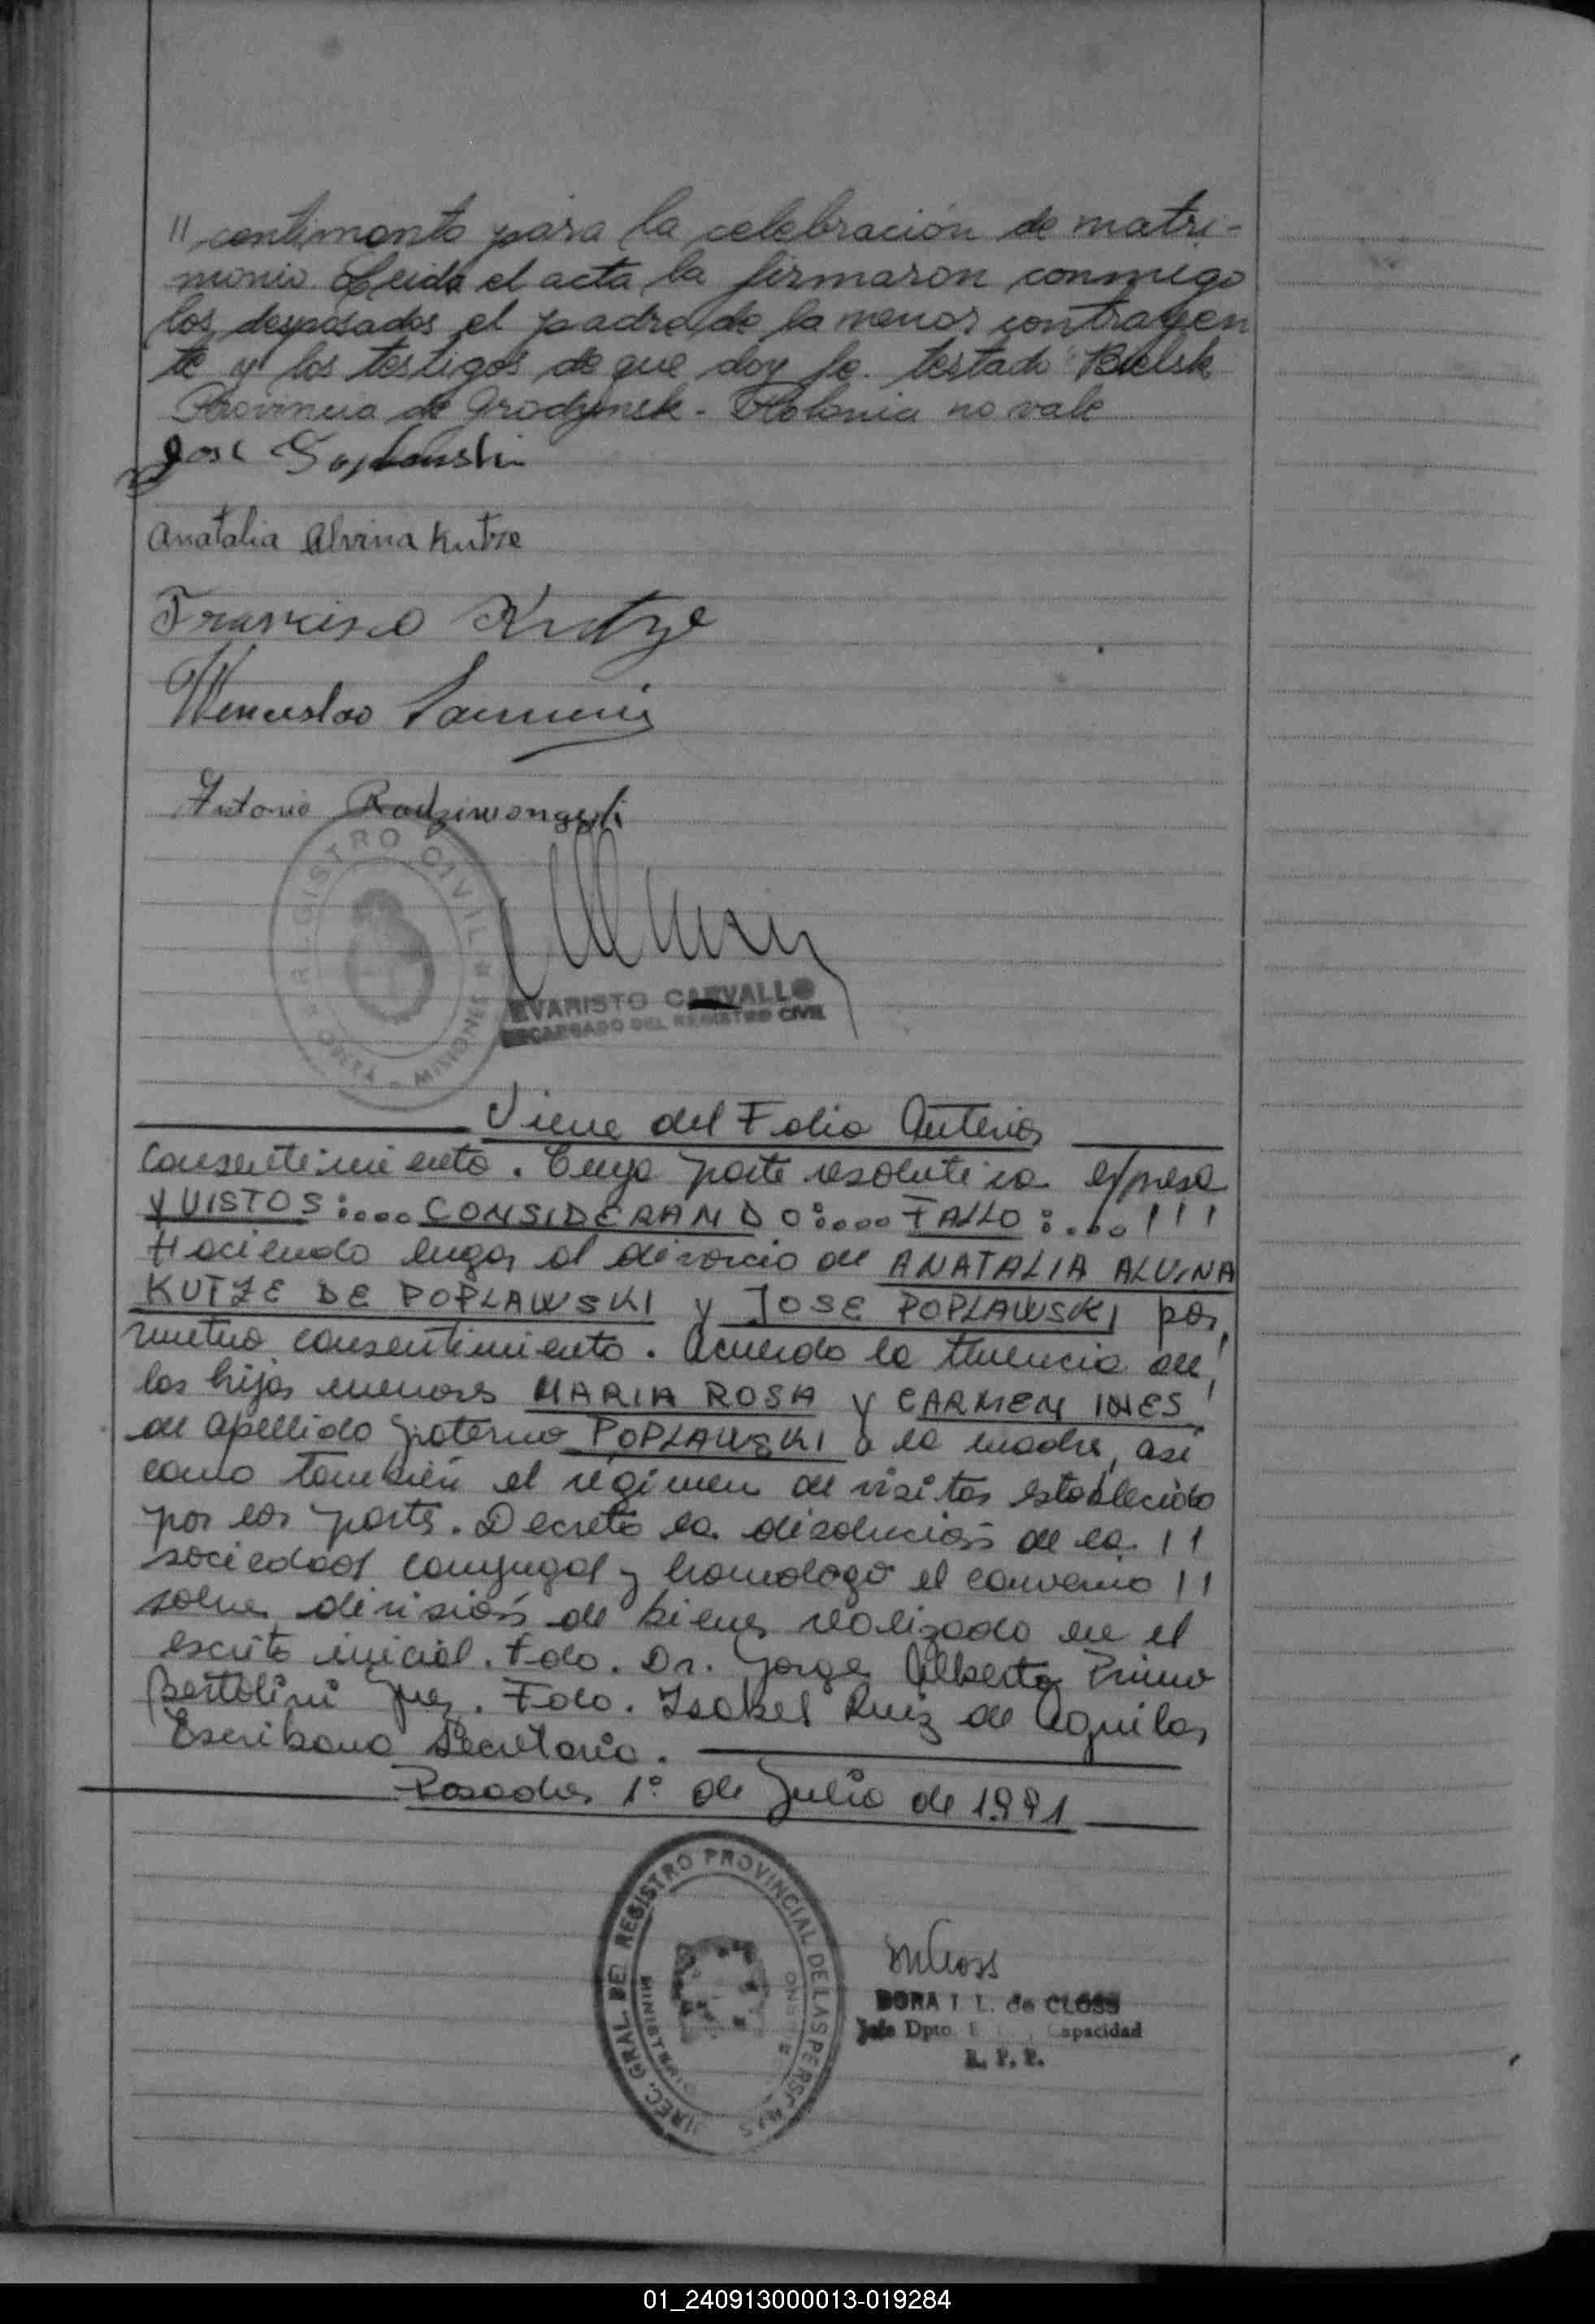 " centimonto para la celebración de matri-
monio Leida el acta la firmaron conmigo
los desposados el padre de la menor contrayen
te y los testigos de que doy fe. testado Bielsk
Provincia de Grodzensk - Polonia no vale
José Poplawski
Anatalia Alvina Kutze
Francisco Kutze
Wenceslao
Antonio
REGISTRO CIVIL
OBERÁ - MISIONES
EVARISTO CARVALLO
ENCARGADO DEL REGISTRO CIVIL
Viene del Folio Anterior
Consentimiento. Cuya parte resolutiva expresa
Y VISTOS:.... CONSIDERANDO:.... FALLO:....!!!
Haciendo lugar al divorcio de ANATALIA ALVINA
KUTZE DE POPLAWSKI y JOSE POPLAWSKI por
mutuo consentimiento. Acuerdo la tenencia de
los hijos menores MARIA ROSA y CARMEN INES
de apellido paterno POPLAWSKI a la madre, asi
como también el régimen de visitas establecido
por las partes. Decreto la disolución de la !!
sociedad conyugal y homologo el convenio !!
sobre división de bienes realizado en el
escrito inicial. Fdo. Dr. Jorge Alberto Primo
Bertolini Juez. Fdo. Isabel Ruiz de Aguilar
Escribana Secretaria.
Posadas 1º de Julio de 1991
DIREC. GRAL. DEL REGISTRO PROVINCIAL DE LAS PERSONAS
MINISTERIO
DORA I. L. de CLOSS
Jefe Dpto. E Capacidad
R. P. P.
01_240913000013-019284